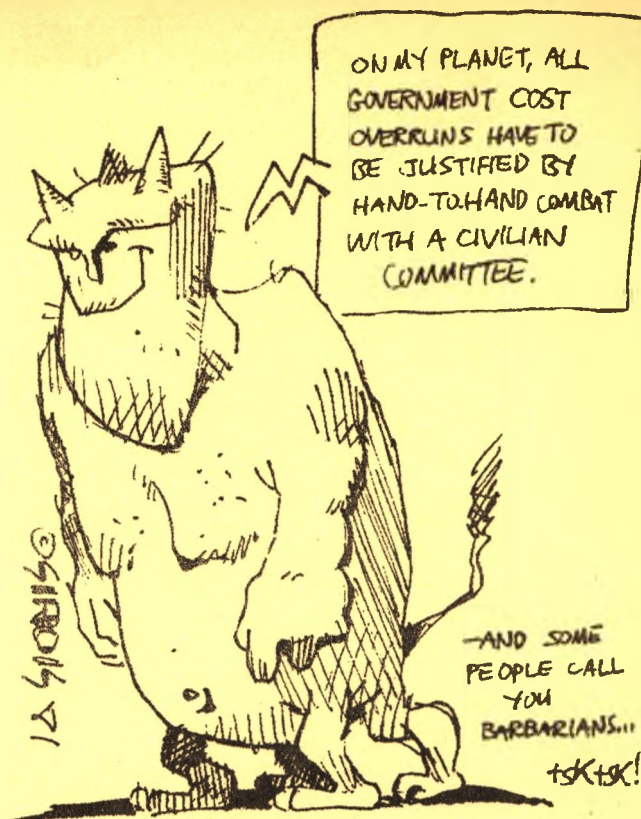 ON MY PLANET, ALL
GOVERNMENT COST
OVERRUNS HAVE TO
BE JUSTIFIED BY
HAND-TO-HAND COMBAT
WITH A CIVILIAN
COMMITTEE.
-AND SOME
PEOPLE CALL
YOU
BARBARIANS...
tsk tsk!
©SIROIS